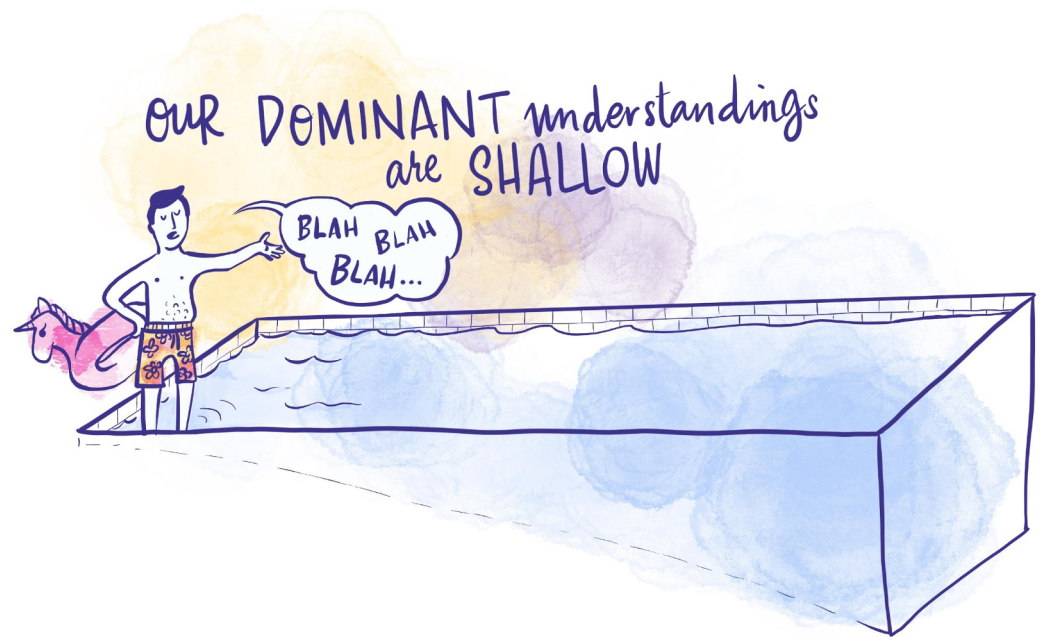 OUR DOMINANT understandings
are SHALLOW
BLAH BLAH
BLAH...